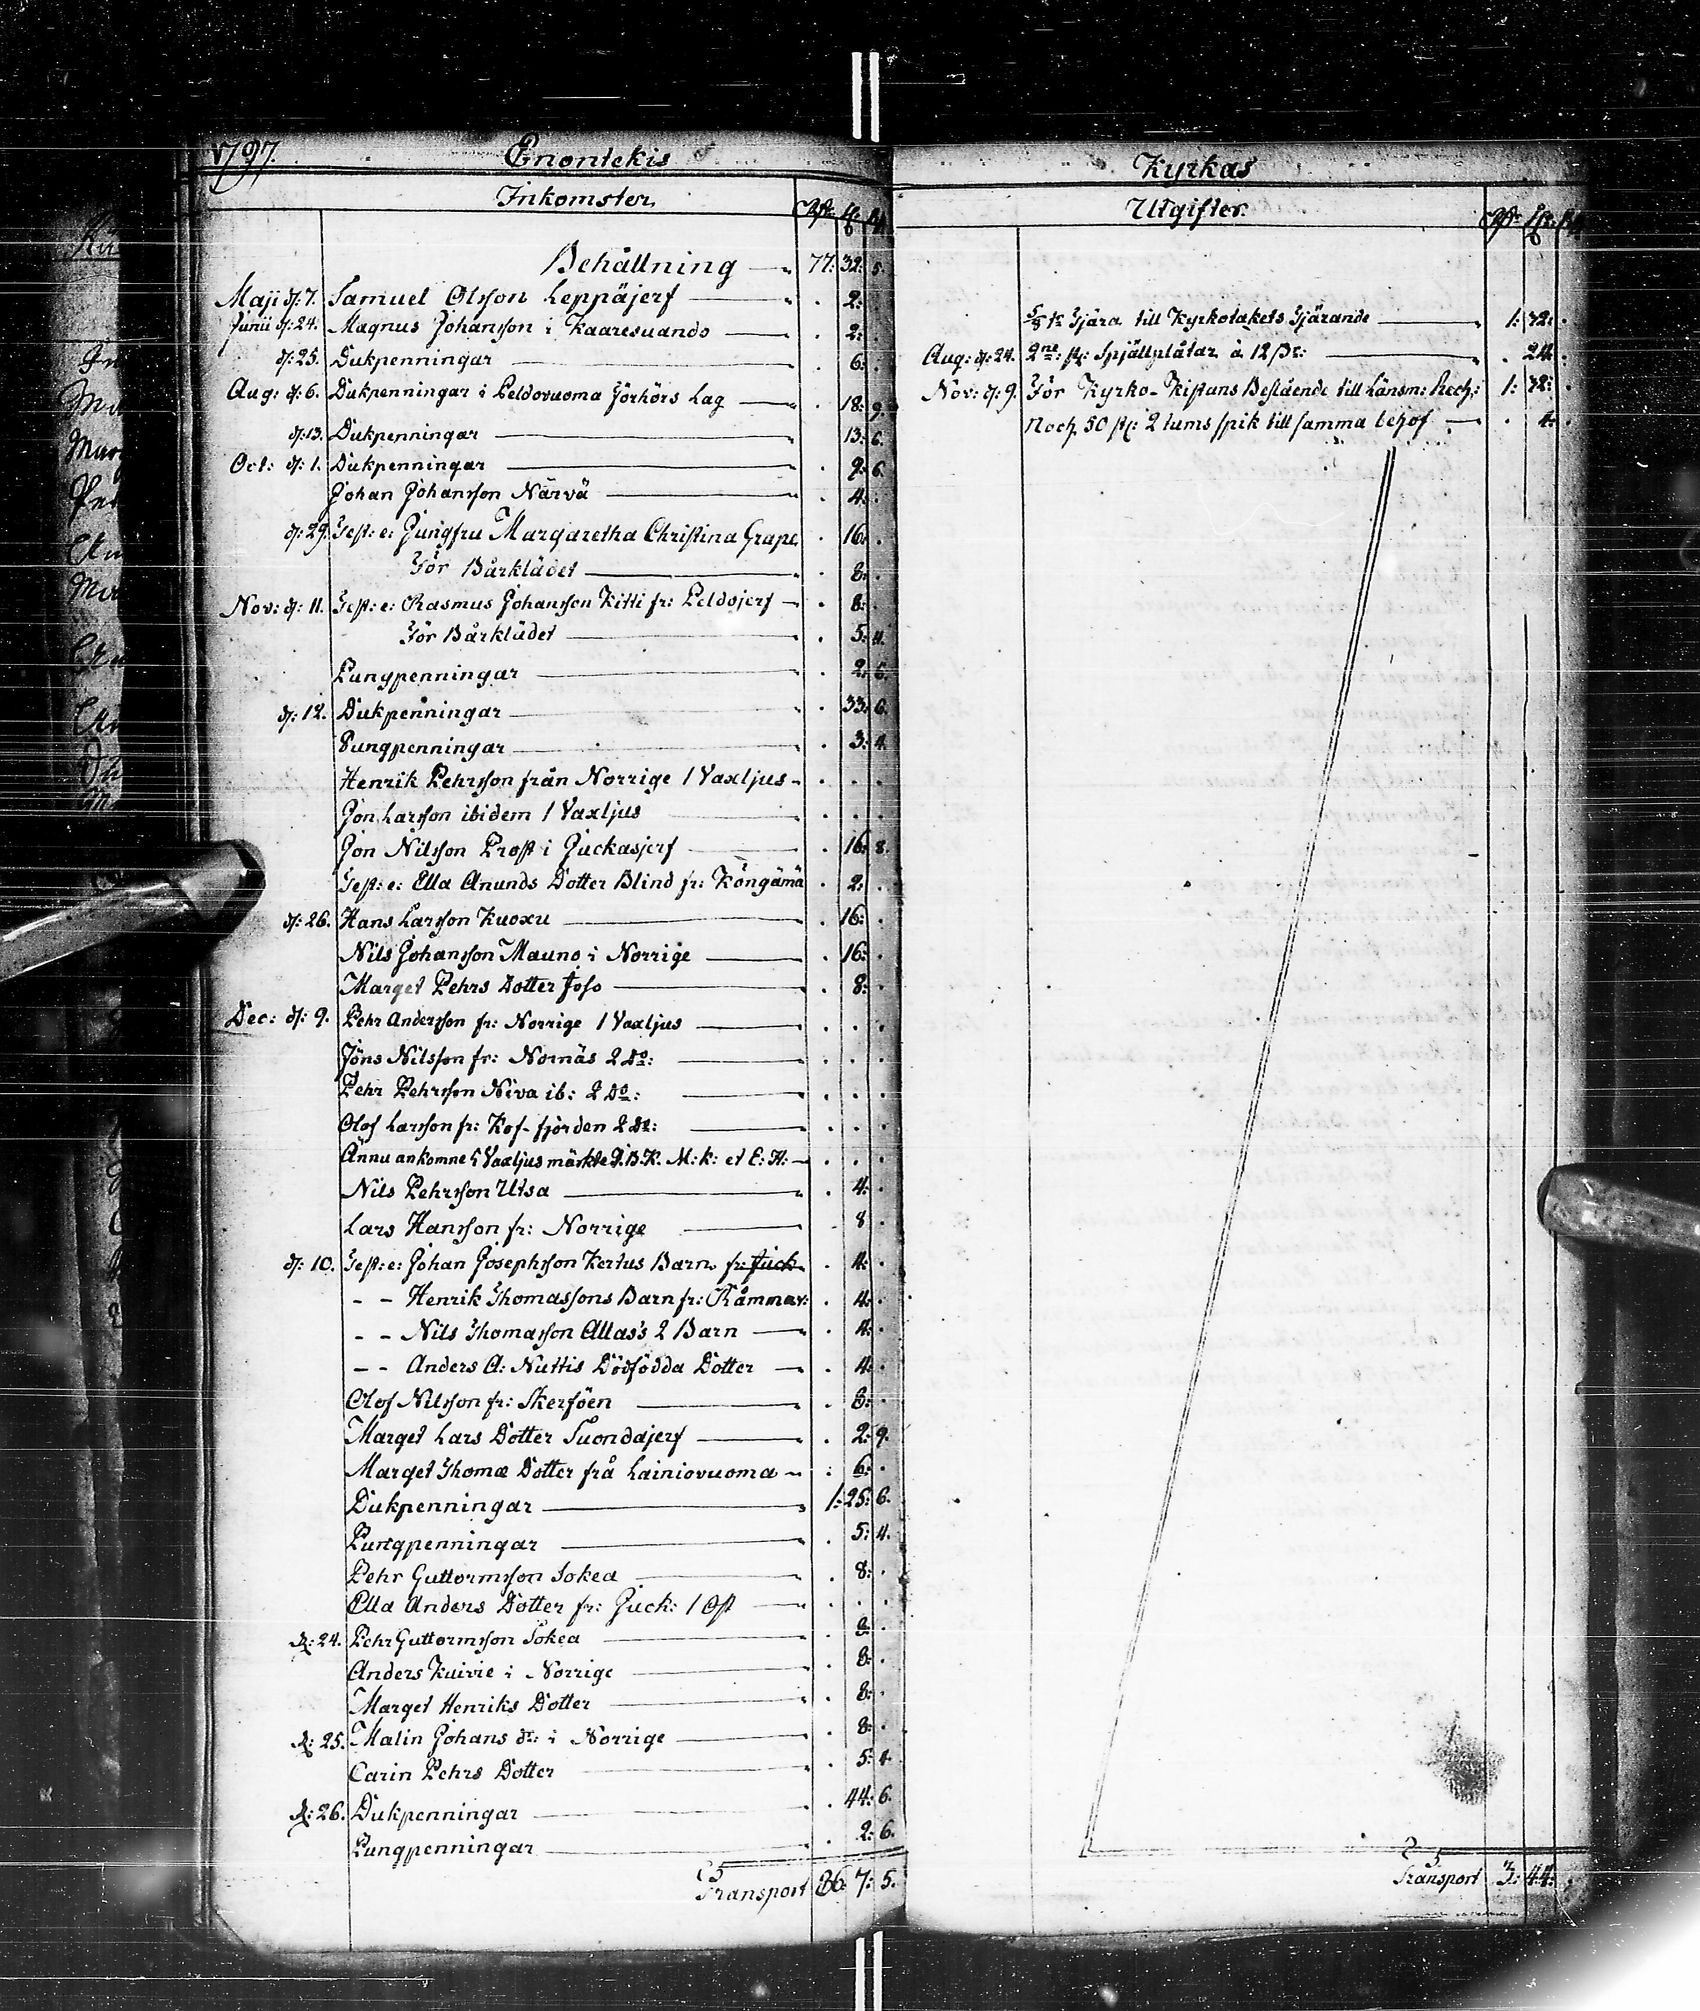 1797.
Enontekis
Inkomster
Rdr ß: rst
Behållning 77: 32: 5.
Maji d: 7. Samuel Olsson Leppäjerf . 2: .
Junii d: 24. Magnus Johansson i Kaaresuando . 2: .
d: 25. Dukpenningar . 6: .
Aug: d: 6. Dukpenningar i Peldovuoma Förhörs Lag . 18: 9.
d: 13. Dukpenningar . 13: 6.
Oct: d: 1. Dukpenningar . 9: 6.
Johan Johansson Närvä . 4: .
d: 29. Test: e: Jungfru Margaretha Christina Grape . 16: .
För Bårklädet . 8: .
Nov: d: 11. Test: e: Rasmus Johansson Kitti fr: Peldojerf . 8: .
För Bårklädet . 5: 4.
Pungpenningar . 2: 6.
d: 12. Dukpenningar . 33: 6.
Pungpenningar . 3: 4.
Henrik Pehrsson från Norrige 1 Vaxljus . . .
Jon Larsson ibidem 1 Vaxljus . . .
Jon Nilsson Prost i Juckasjerf . 16: 8.
Test: e: Ella Anunds Dotter Blind fr: Köngämä . 2: .
d: 26. Hans Larsson Kuoxu . 16: .
Nils Johansson Mauno i Norrige . 16: .
Marget Pehrs Dotter Joso . 8: .
Dec: d: 9. Pehr Andersson fr: Norrige 1 Vaxljus . . .
Jöns Nilsson fr: Nornäs 2 Do: . . .
Pehr Pehrsson Niva ib: 2 Do: . . .
Olof Larsson fr: Kof-fjorden 2 Do: . . .
Ännu ankomne 5 Vaxljus märkte P.B.K. M: k: et E: H: . . .
Nils Pehrsson Utsa . 4: .
Lars Hansson fr: Norrige . 8 .
d: 10. Test: e: Johan Josephsson Kertus Barn fr: Juck . 4: .
- - Henrik Thomassons Barn fr: Råmmav: . 4: .
- - Nils Thomasson Allas's 2 Barn . 4: .
- - Anders A: Nuttis Dödfödda Dotter . 4: .
Olof Nilsson fr: Skerföen . 8: .
Marget Lars Dotter Suondajerf . 2: 9.
Marget Thomæ Dotter frå Lainiovuoma . 6: .
Dukpenningar 1: 25: 6.
Pungpenningar . 5: 4.
Pehr Guttormsson Sokea . 8: .
Ella Anders Dotter fr: Juck: 1 Ost . . .
d: 24. Pehr Guttormsson Sokea . 8: .
Anders Kuivie i Norrige . 8: .
Marget Henriks Dotter . 8: .
d: 25. Malin Johans dr: i Norrige . 8: .
Carin Pehrs Dotter . 5: 4.
d: 26. Dukpenningar . 44: 6.
Pungpenningar . 2: 6.
Transport 86: 7: 5.
Kyrkas
Utgifter.
Rdr ß: rst
5/8 tr Tjära till Kyrkotakets Tjärande 1: 32: .
Aug: d: 24. 2ne: st: Spjällplåtar à 12 ßr: . 24: .
Nov: d: 9. För Kyrko-Kistans Beslående till Länsm: Hech: 1: 32: .
Noch 50 st: 2 tums spik till samma behof . 4: .
Transport 3: 44: .